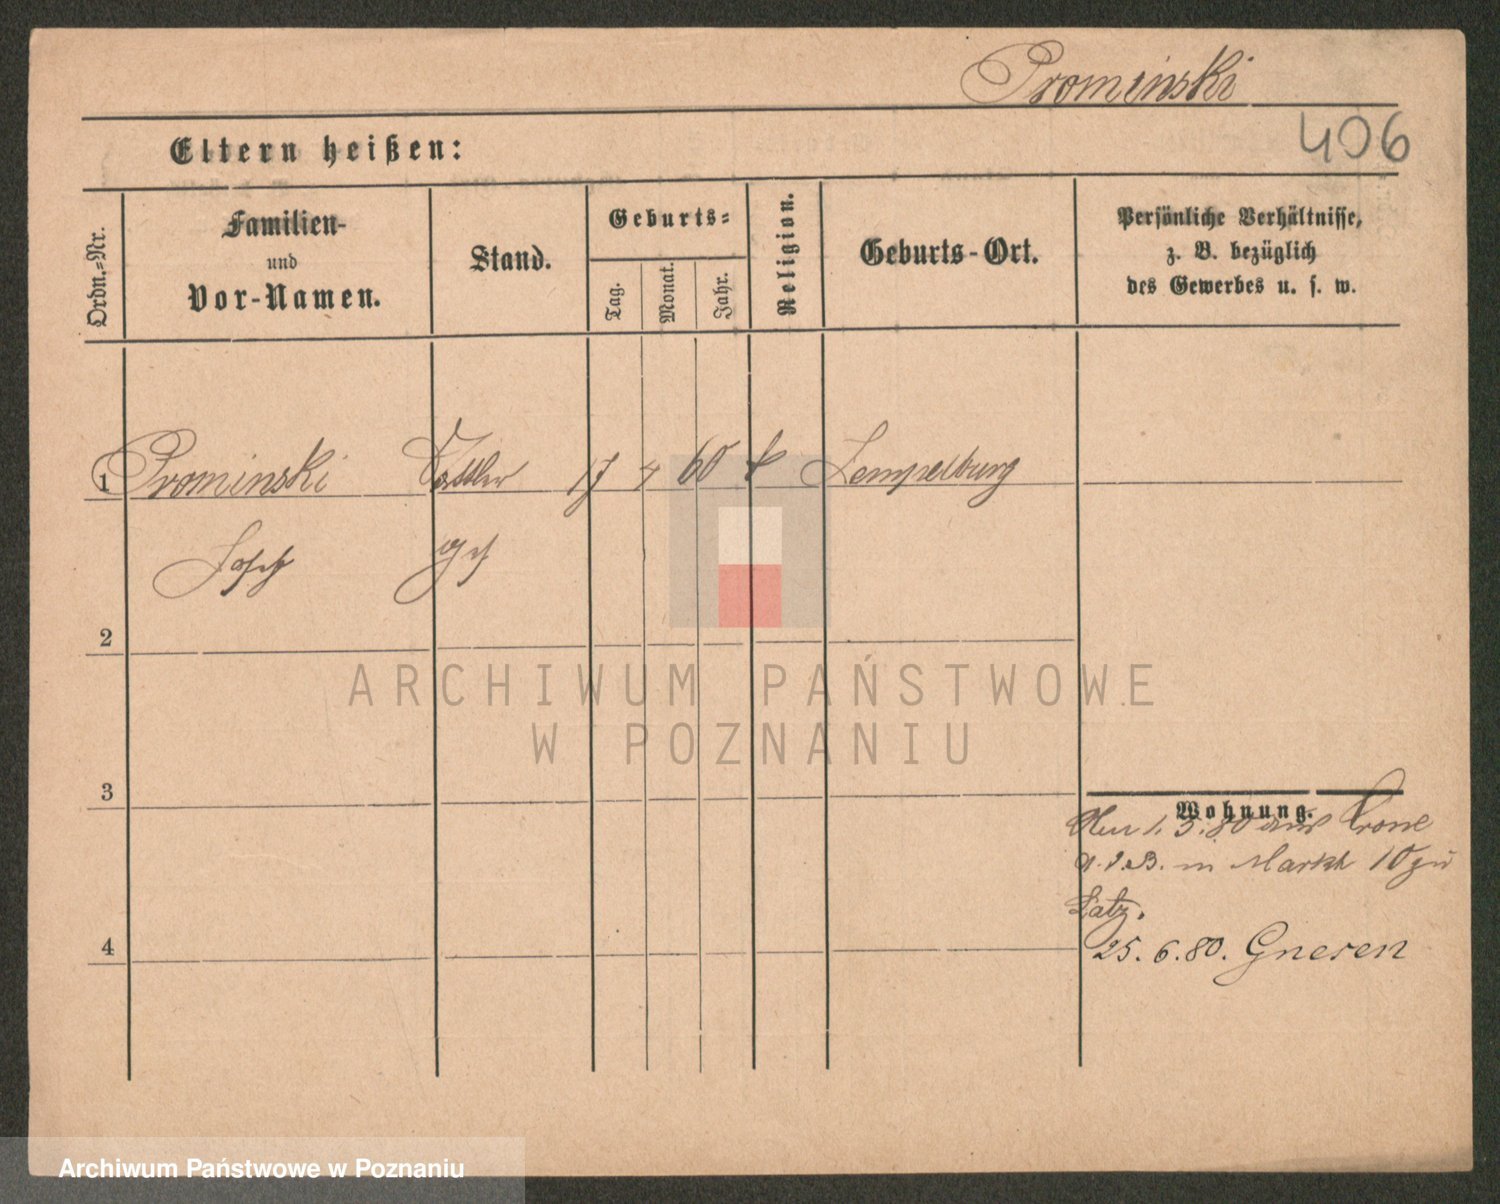 Prominski
406
Eltern heißen:
Ordn.=Nr.
Familien-
und
Vor-Namen.
Stand.
Geburts=
Tag.
Monat.
Jahr.
Religion.
Geburts-Ort.
Persönliche Verhältnisse,
z. B. bezüglich
des Gewerbes u. s. w.
1 Prominski Sattler 17 4 60 k Zempelburg
Josef
2
3
4
Wohnung.
1. 5. 80 aus Crone
a. d. B. in Markt 10 zu
Latz.
25. 6. 80. Gnesen
ARCHIWUM PAŃSTWOWE
W POZNANIU
Archiwum Państwowe w Poznaniu